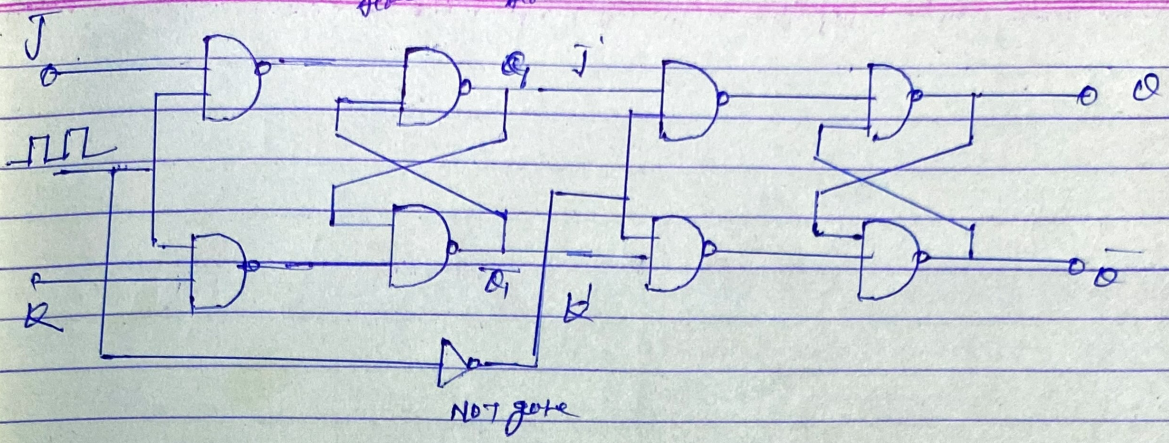 J
Q₁ J'
Q
Q̅₁
K'
Q̅
K
NOT gate